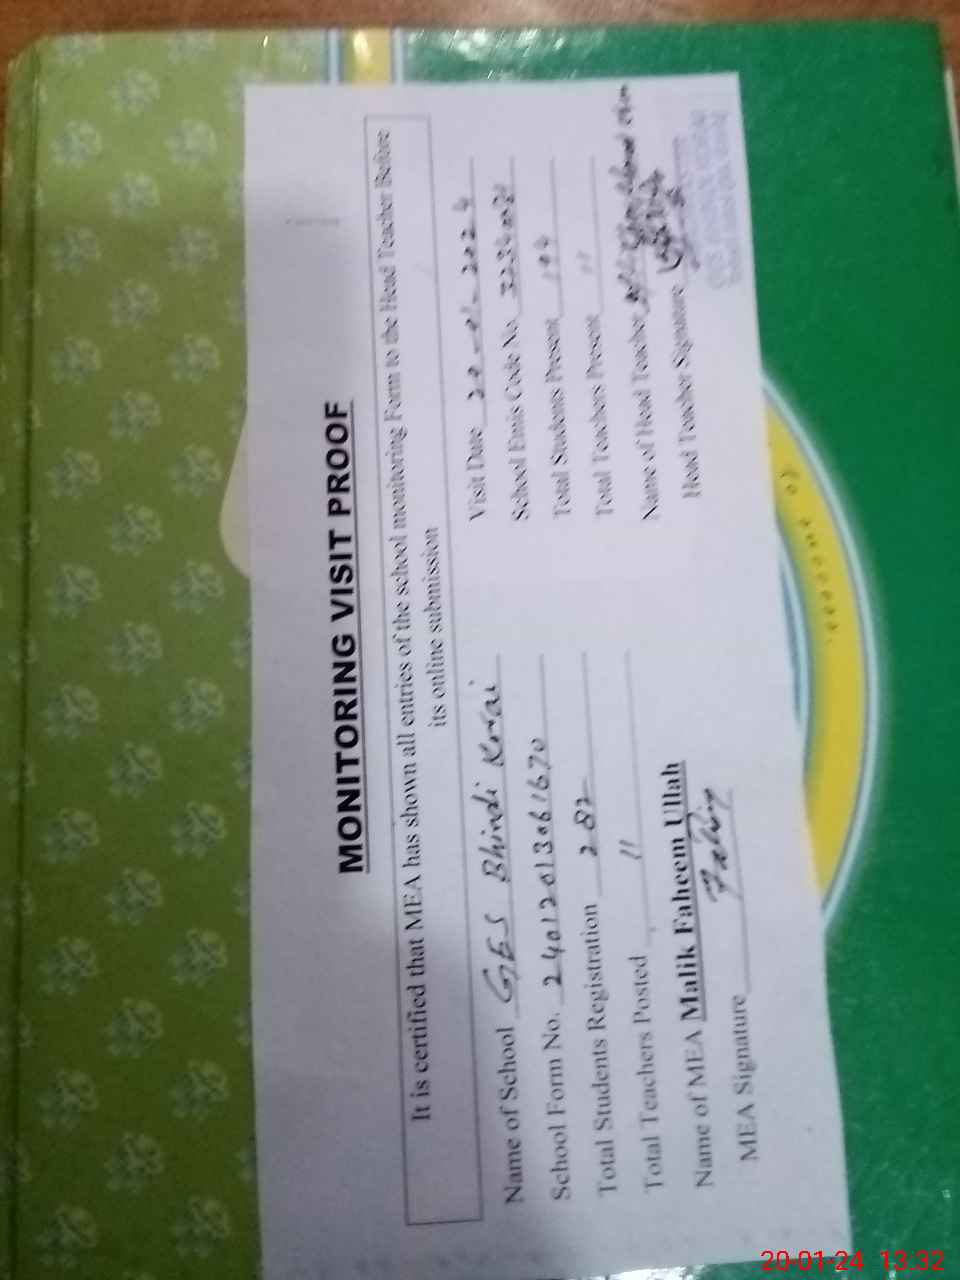 MONITORING VISIT PROOF
It is certified that MEA has shown all entries of the school monitoring Form to the Head Teacher Before
its online submission
Name of School GES Bhindi Korai
Visit Date 20-01-2024
School Form No. 2401201306 1670
School Emis Code No.
Total Students Registration 282
Total Students Present 194
Total Teachers Posted 11
Total Teachers Present 11
Name of MEA Malik Faheem Ullah
Name of Head Teacher
MEA Signature
Head Teacher Signature
20-01-24 13:32